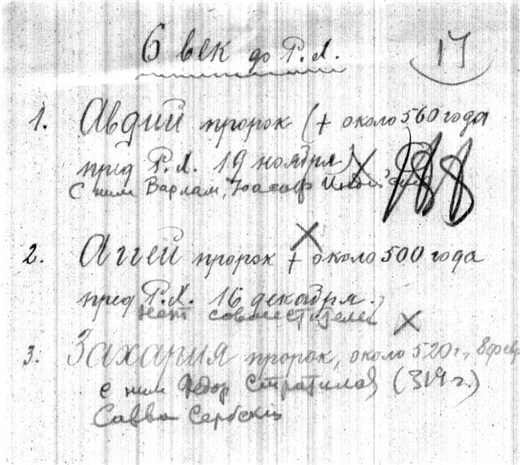 6 век до Р.Х.
17
1. Авдий пророк († около 560 года
пред Р.Х. 19 ноября)
С ним Варлам, Иоасаф
2. Аггей пророк † около 500 года
пред Р.Х. 16 декабря.
Нет совместителей
3. Захария пророк, около 520 г., 8 февр
с ним Федор Стратилат (319 г.)
Савва Сербский